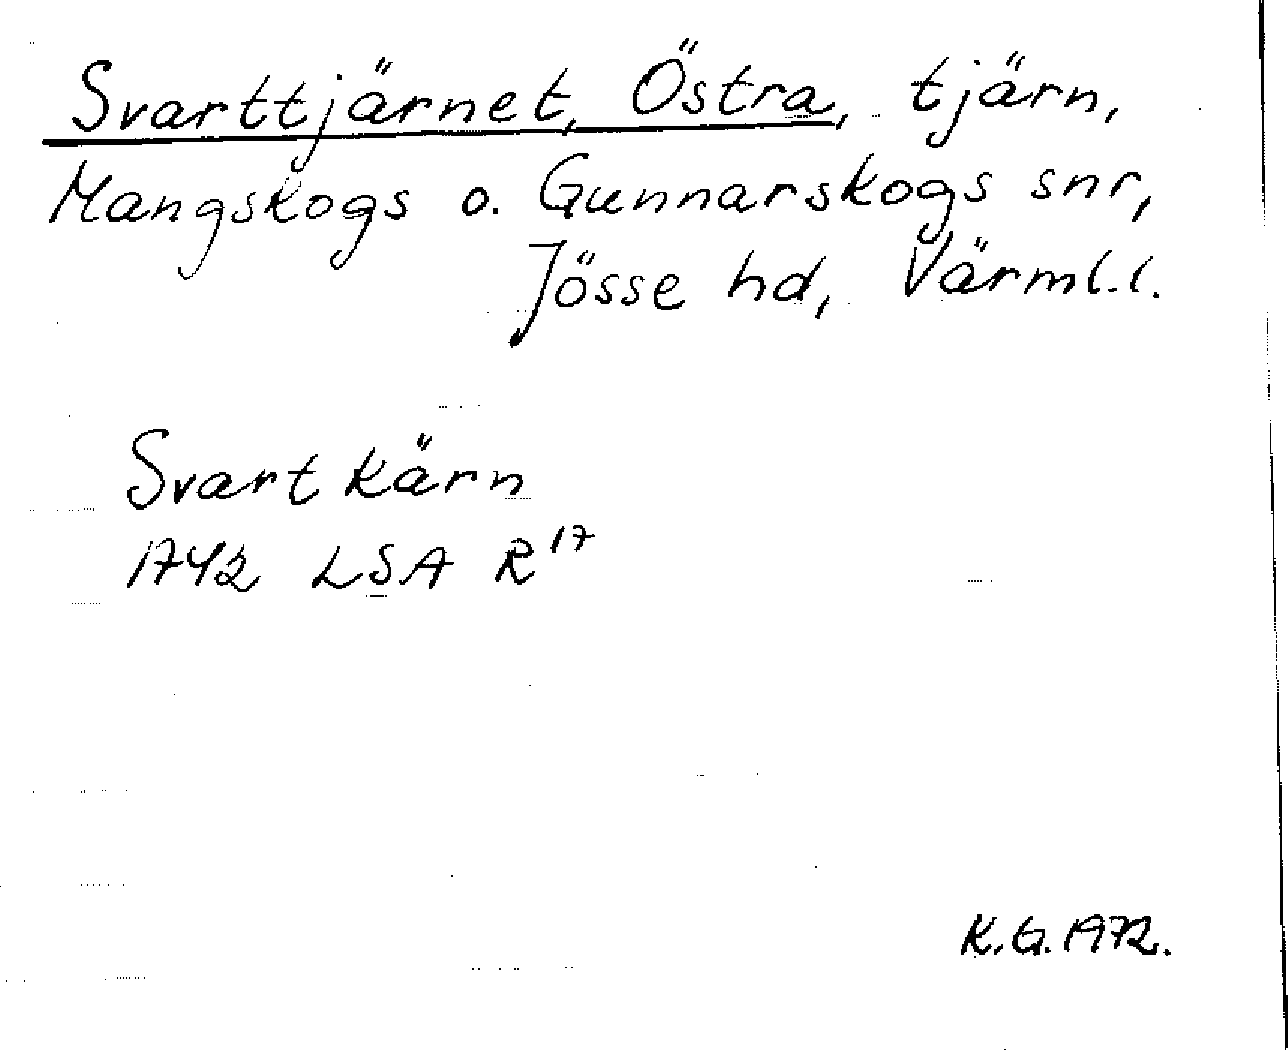 Svarttjärnet, Östra, tjärn,
Mangskogs o. Gunnarskogs snr,
Jösse hd, Värml.l.
Svart kärn
1742 LSA R¹⁷
K.G. 1972.